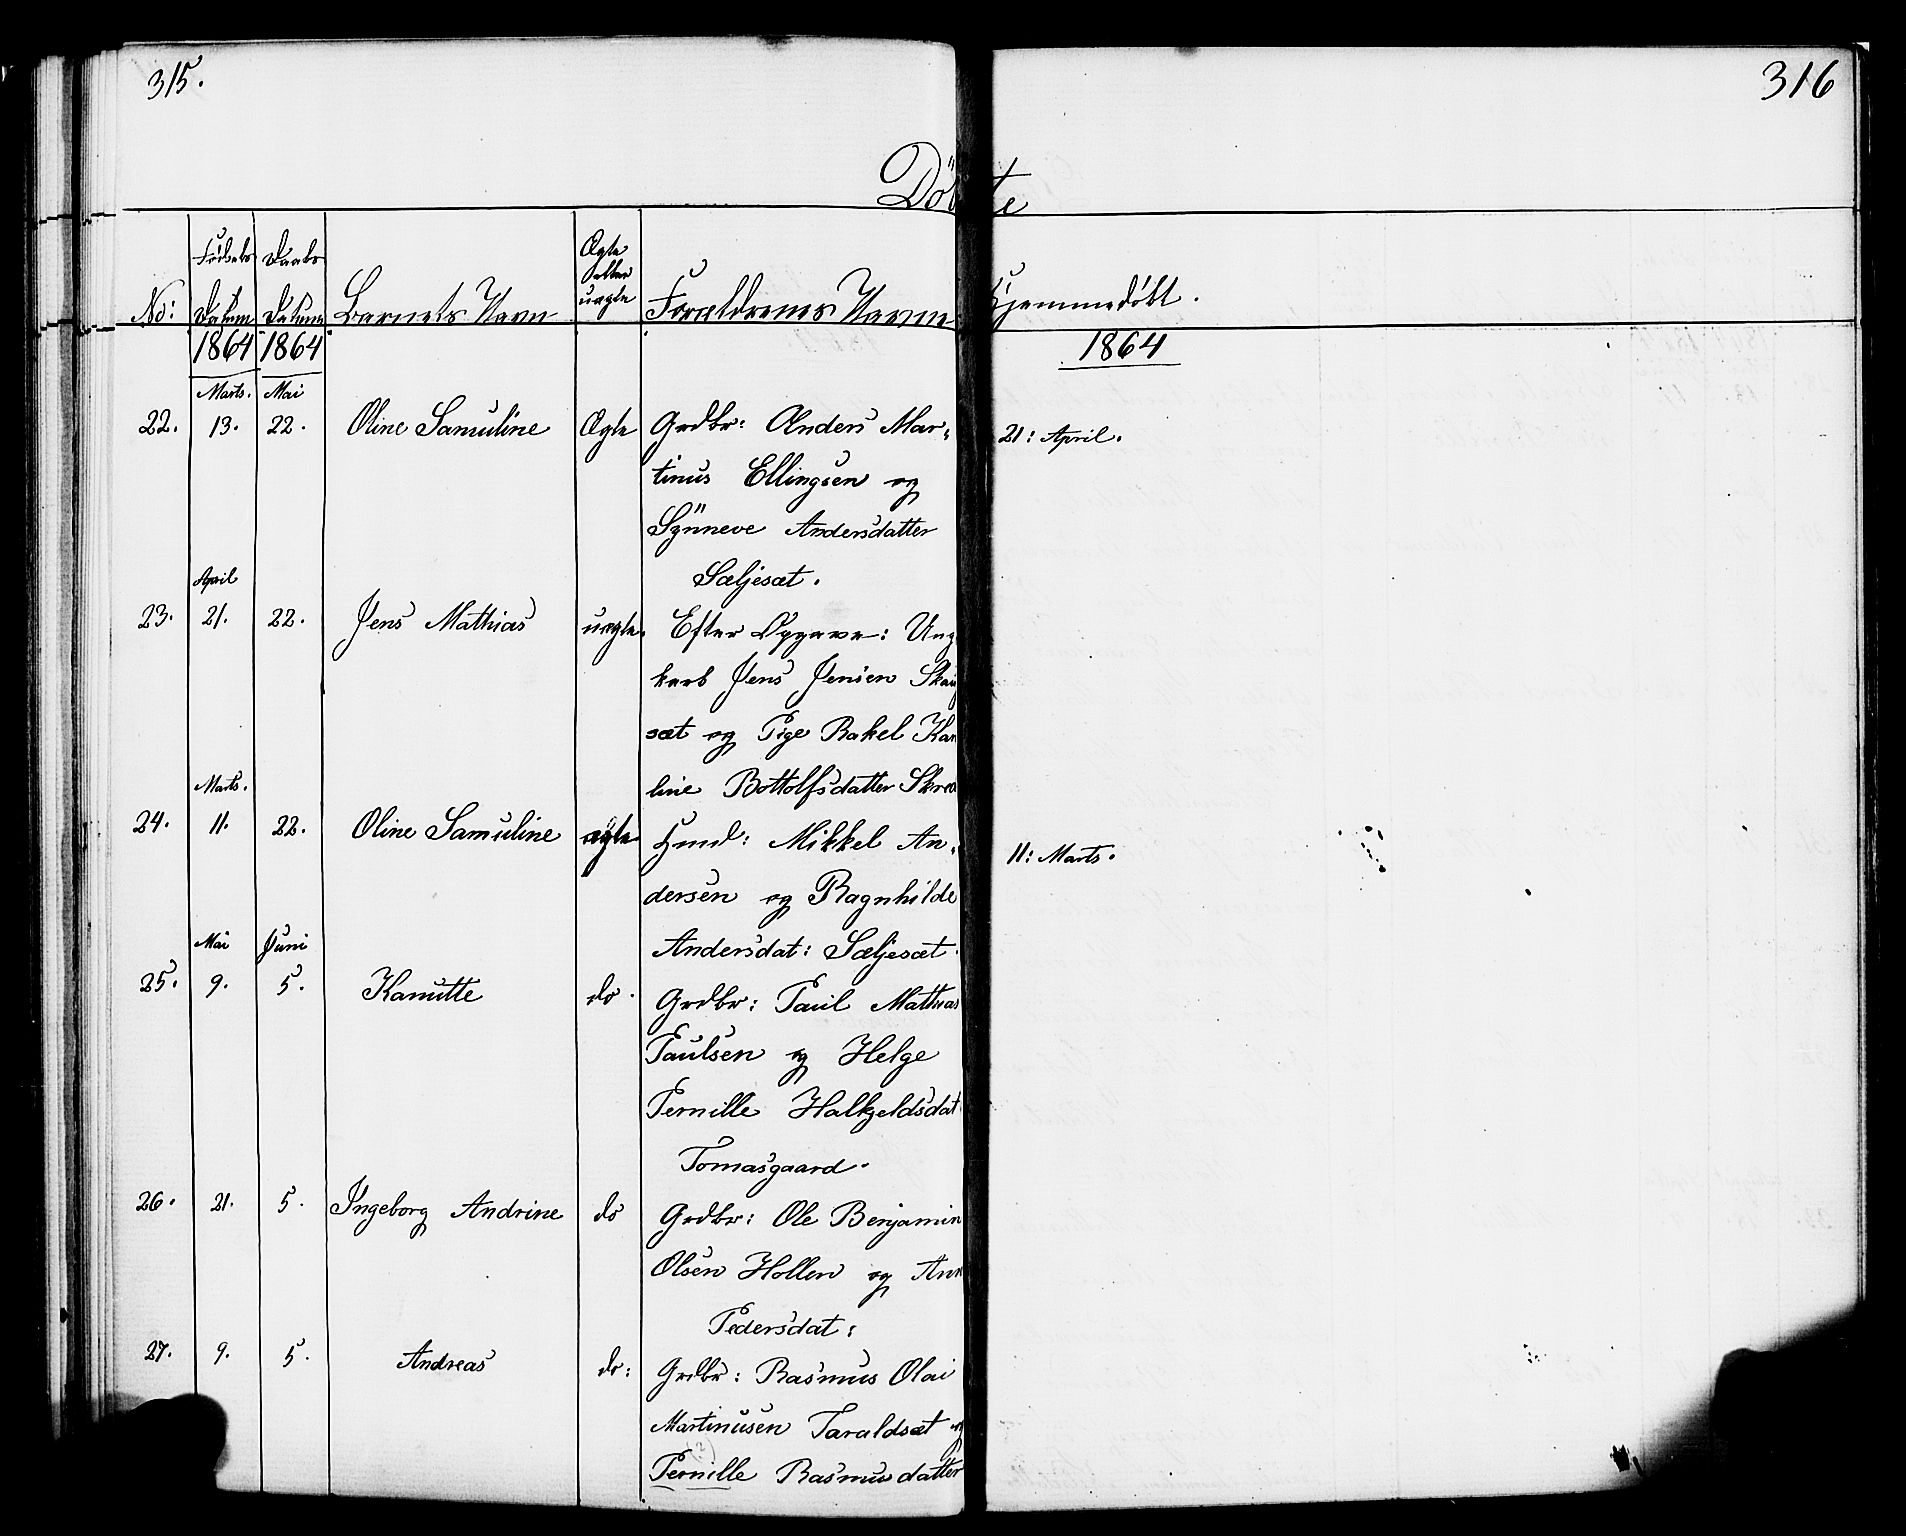 315.
316
Döbte
Fødsels Daabs Ægte eller uægte
No: Datum Datum Barnets Navn Forældrenes Navne Hjemmedøbt.
1864 1864 1864
Marts. Mai
22. 13. 22. Oline Samuline Ægte Grdbr: Anders Mar-
21: April.
tinus Ellingsen og
Synneve Andersdatter
Sæljesæt.
April
23. 21. 22. Jens Mathias uægte. Efter Opgave: Ung
karl Jens Jensen
sæt og Pige Rakel
line Bottolfsdatter
Marts.
24. 11. 22. Oline Samuline ægte Husmd: Mikkel An-
11: Marts.
dersen og Ragnhilde
Andersdat: Sæljesæt.
Mai Juni
25. 9. 5. Kanutte do. Grdbr: Paul Mathias
Paulsen og Helge
Pernille Halkjeldsdat
Tomasgaard.
26. 21. 5. Ingeborg Andrine do Grdbr: Ole Benjamin
Olsen Hollen og
Pedersdat:
27. 9. 5. Andreas do: Grdbr: Rasmus Olai
Martinusen Taraldsæt og
(?)
Pernille Rasmusdatter